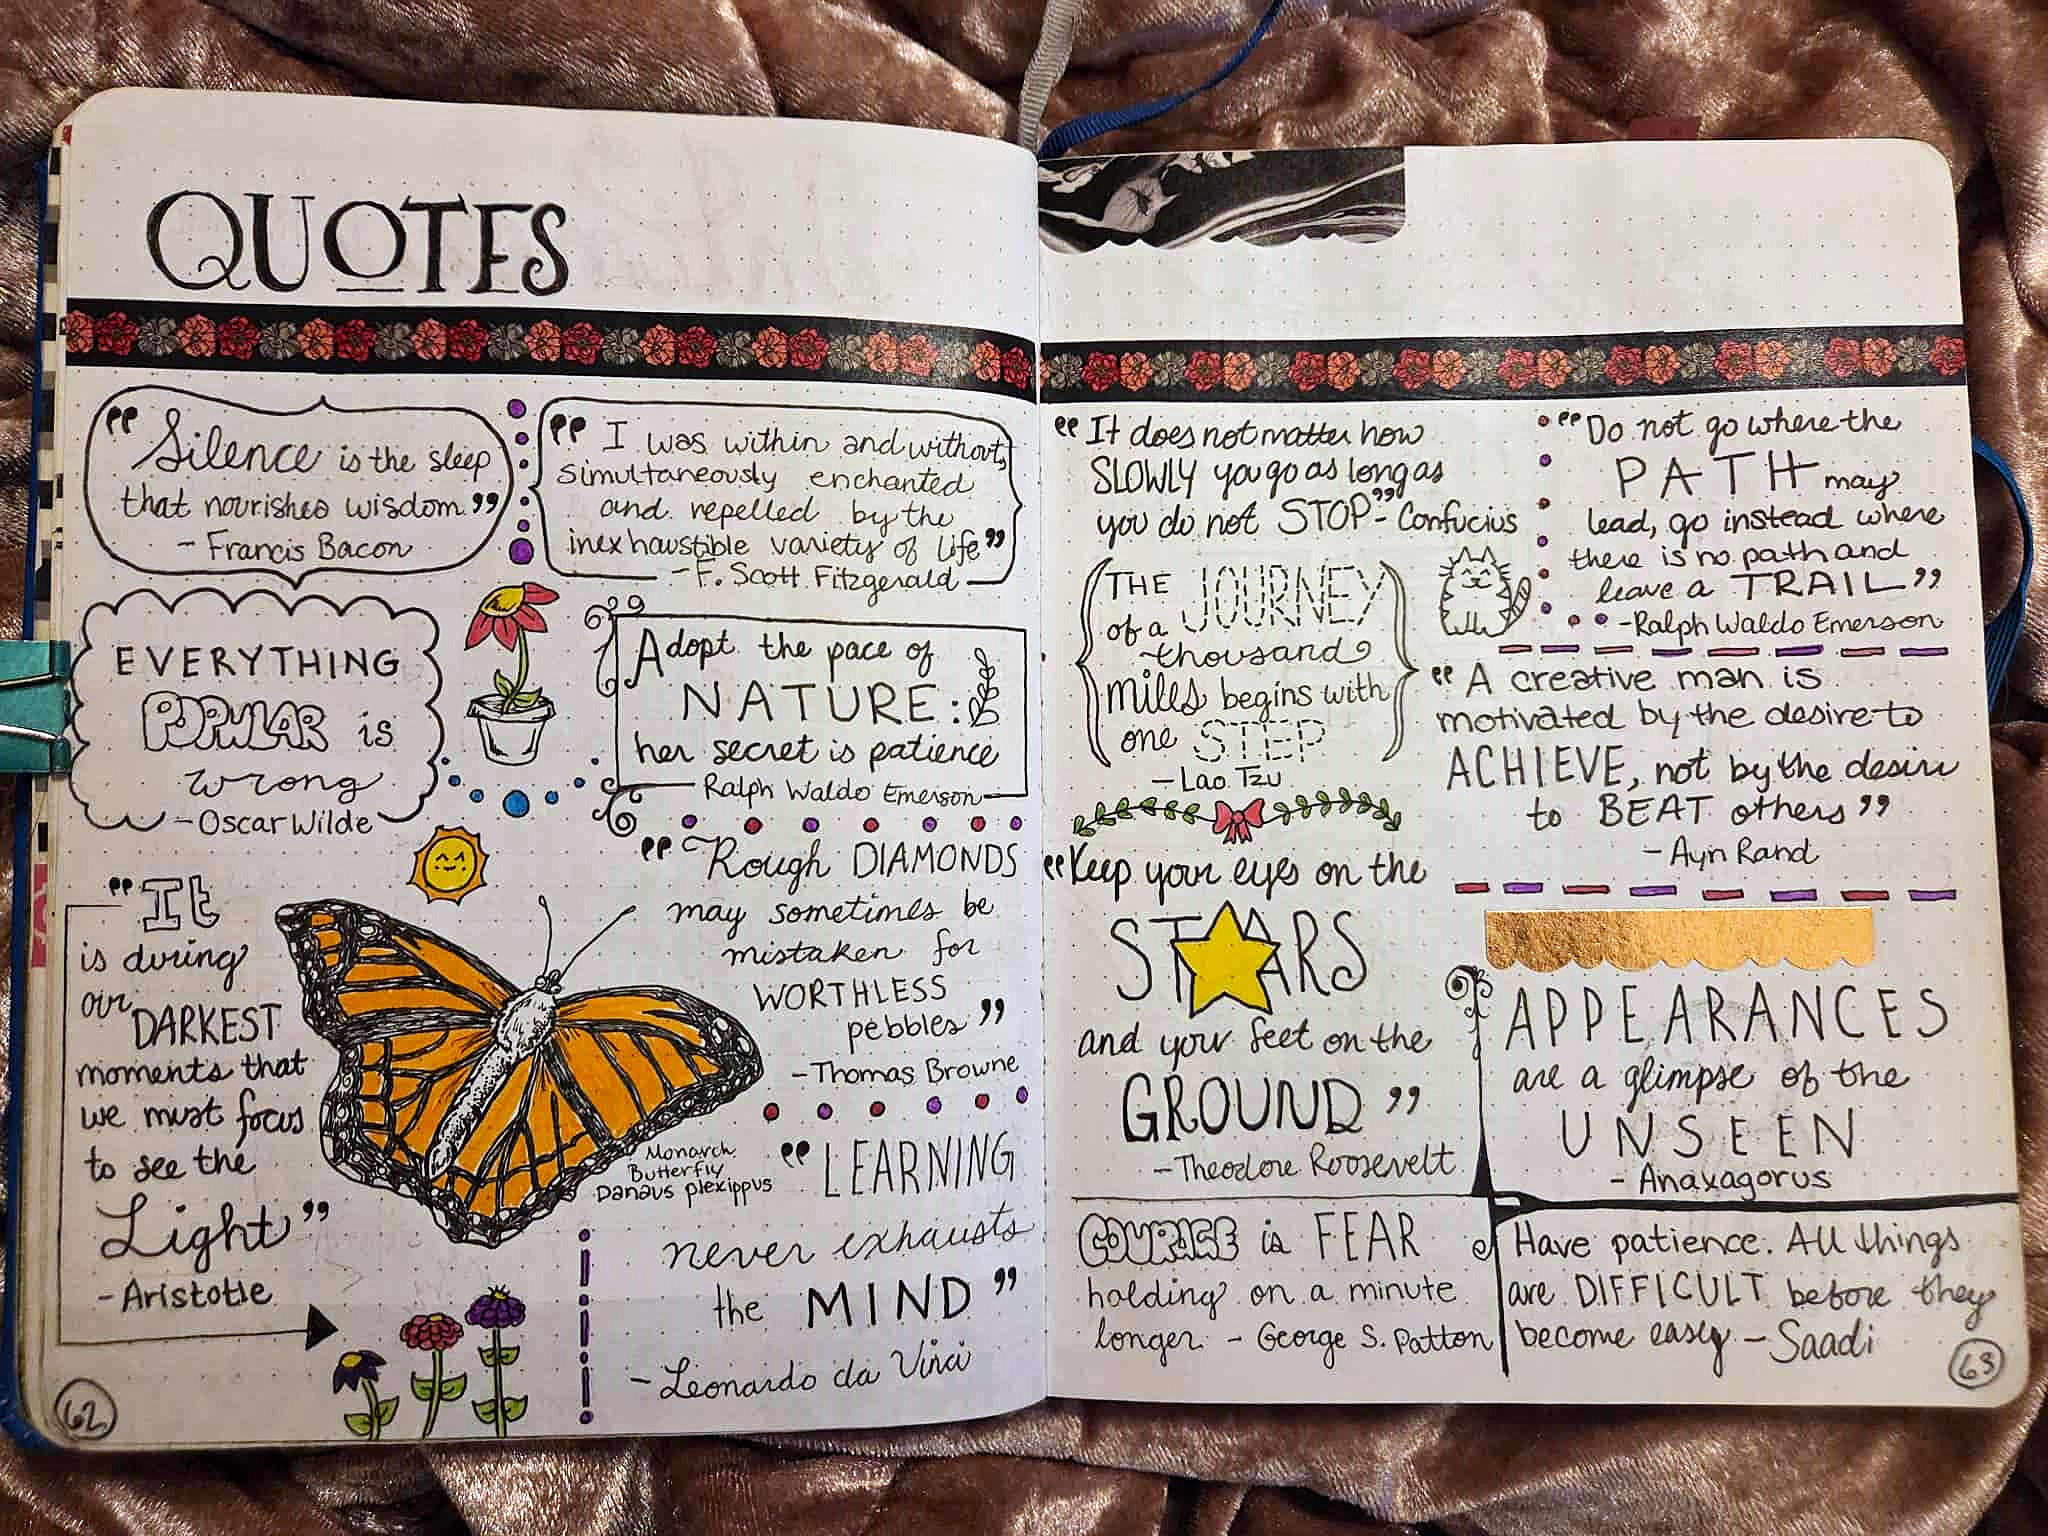 QUOTES
"Silence is the sleep
that nourishes wisdom."
- Francis Bacon
"I was within and without,
simultaneously enchanted
and repelled by the
inexhaustible variety of life"
- F. Scott Fitzgerald
EVERYTHING
POPULAR is
wrong
- Oscar Wilde
Adopt the pace of
NATURE:
her secret is patience
Ralph Waldo Emerson
"It
is during
our
DARKEST
moments that
we must focus
to see the
Light"
- Aristotle
"Rough DIAMONDS
may sometimes be
mistaken for
WORTHLESS
pebbles"
- Thomas Browne
Monarch
Butterfly
Danaus plexippus
"LEARNING
never exhausts
the MIND"
- Leonardo da Vinci
62
"It does not matter how
SLOWLY you go as long as
you do not STOP" - Confucius
THE JOURNEY
of a
thousand
miles begins with
one STEP
- Lao Tzu
"Keep your eyes on the
STARS
and your feet on the
GROUND"
- Theodore Roosevelt
COURAGE is FEAR
holding on a minute
longer - George S. Patton
"Do not go where the
PATH may
lead, go instead where
there is no path and
leave a TRAIL"
- Ralph Waldo Emerson
"A creative man is
motivated by the desire to
ACHIEVE, not by the desire
to BEAT others"
- Ayn Rand
APPEARANCES
are a glimpse of the
UNSEEN
- Anaxagorus
Have patience. All things
are DIFFICULT before they
become easy - Saadi
63